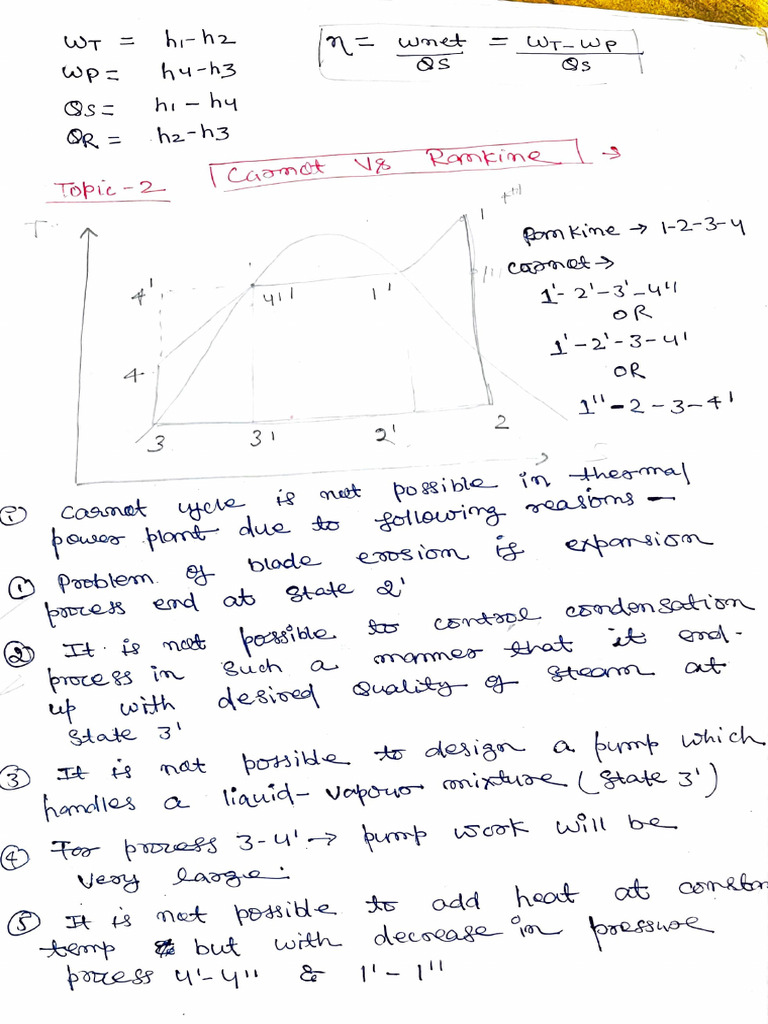 WT = h1-h2
η = wnet/Qs = WT-WP/Qs
WP = h4-h3
Qs = h1-h4
QR = h2-h3
Topic-2 Carnot Vs Rankine →
T
1
Rankine → 1-2-3-4
4' 4'' 1' 1''
Carnot →
1'-2'-3'-4''
OR
1'-2'-3-4'
OR
1''-2-3-4'
4
3 3' 2' 2
① Carnot cycle is not possible in thermal
power plant due to following reasons -
① Problem of blade erosion if expansion
process end at state 2'
② It is not possible to control condensation
process in such a manner that it end-
up with desired quality of steam at
state 3'
③ It is not possible to design a pump which
handles a liquid-vapour mixture (state 3')
④ For process 3-4' → pump work will be
very large.
⑤ It is not possible to add heat at constn
temp but with decrease in pressure
process 4'-4'' & 1'-1''